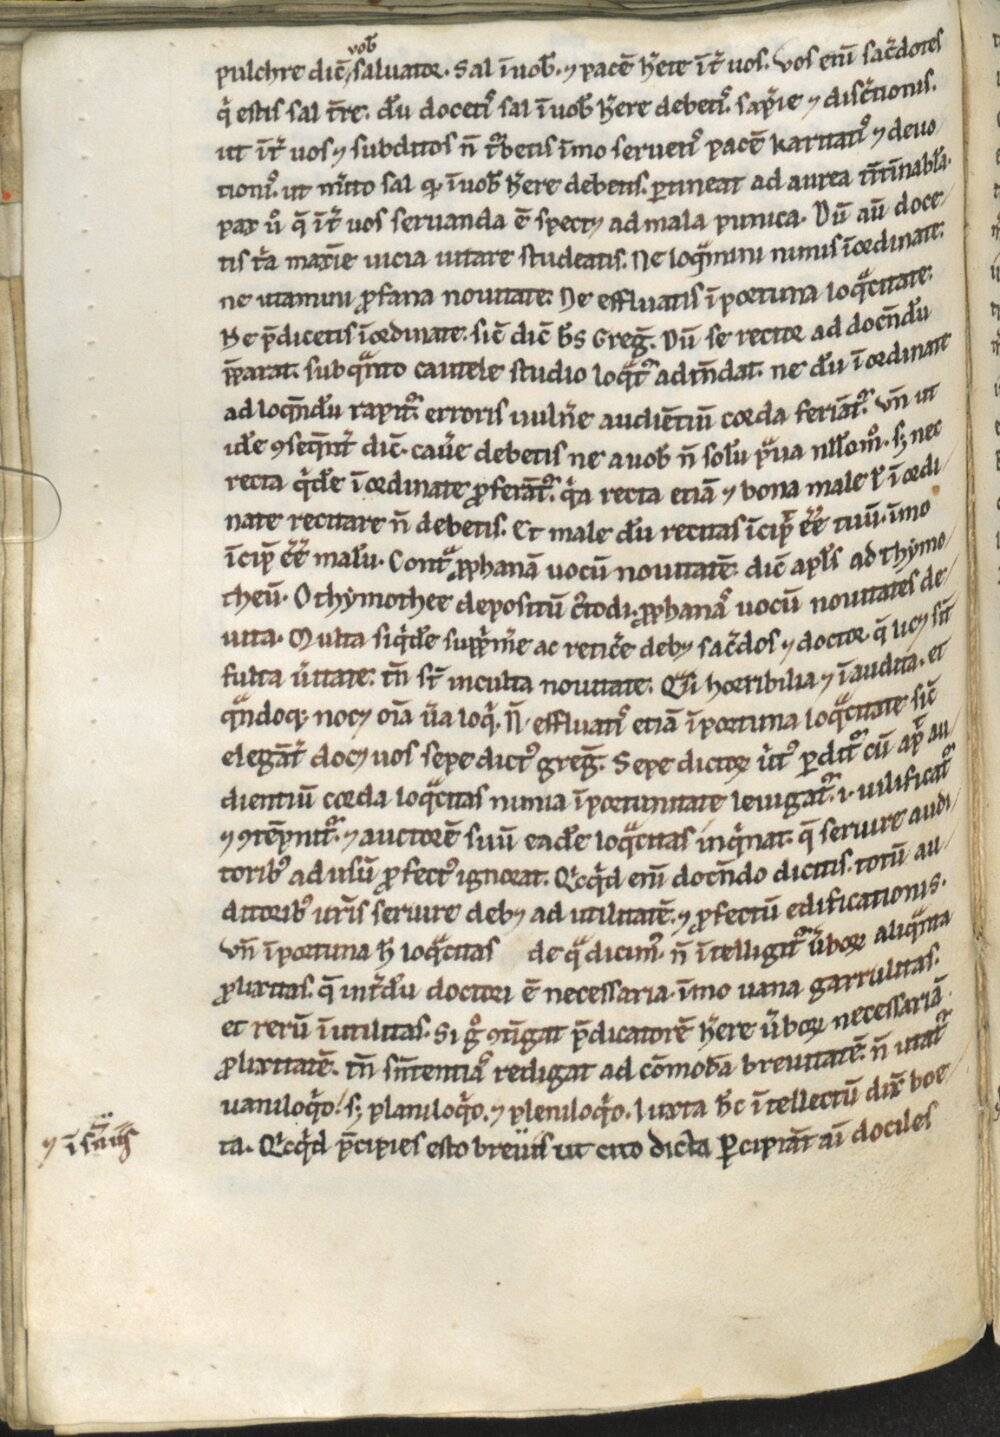 vob̄
pulchre dic̄ saluator. Sal ī uob̄. ⁊ pacē hr̄ete īt̄ uos. Vos enī sac̄dotes
q̄ estis sal tr̄e. dū docetis sal ī uob̄ hr̄ere debetis. sapīe ⁊ disc̄tionis.
ut īt̄ uos ⁊ subditos n̄ tr̄betis īmo seruetis pacē karitatis ⁊ deuo
tionis. ut nitto sal qd̄ ī uob̄ hr̄ere debetis. ꝑtineat ad aurea tītīnabl̄a.
pax u̓ q̄ īt̄ uos seruanda ē spectꝫ ad mala punica. Dū aū doce
tis tr̄a maxīe uicia uitare studeatis. Ne loq̄mini nimis īordinate.
ne utamini ꝓfana nouitate. Ne effluatis īportuna loq̄citate.
Ne p̄dicetis īordinate. sic̄ dic̄ b̄s Greḡ. Dū se rector ad docn̄dū
p̄parat. sub q̄nto cautele studio loq̄t̄ adm̄dat. ne dū īordinate
ad loq̄ndū rapit̄. erroris uuln̄e audiētiū corda feriāt̄. Vn̄ ut
id̄e ꝯseq̄nt̄ dic̄. cau̓e debetis ne a uob̄ n̄ solū p̄ua nll̄om̄. sꝫ nec
recta q̄d̄e īordinate ꝓferāt̄. q̄a recta etiā ⁊ bona male ł īordi
nate recitare n̄ debetis. Et male dū recitas īcip̄ ēe tuū. īmo
īcip̄ ēe malū. Contᵃ ꝓphanā uocū nouitatē dic̄ apl̄s ad thymo
theū. O thymothee depositū c̄todi. ꝓphanas uocū nouitates de
uita. Multa siq̄d̄e supp̄m̄e ac retic̄e debꝫ sac̄dos ⁊ doctor. q̄ licꝫ sīt
fulta u̓itate. tn̄ st̄ inculta nouitate. Qᵃsi horribilia ⁊ īaudita. et
q̄ndoqꝫ nocꝫ oīa u̓a loq̄. N̄ effluatis etiā īportuna loq̄citate sic̄
elegāt̄ docꝫ uos sepe dictꝰ greḡ. Sepe dictoꝝ u̓tꝰ ꝑdit̄ cū ap̄ au
dientiū corda loq̄citas nimia īportunitate leuigat̄. i. uilificat̄
⁊ ꝯtēpnit̄. ⁊ auctorē suū ead̄e loq̄citas inq̄nat. q̄ seruire audi
toribꝰ ad usū ꝓfectꝰ ignorat. Qicq̄d enī docn̄do dicitis. totū au
ditoribꝰ ur̄is seruire debꝫ ad utilitatē. ⁊ ꝓfectū edificationis.
Vn̄ īportuna h̄ loq̄citas de qᵃ dicimꝰ. n̄ ītelligit̄ u̓boꝝ aliq̄nta
ꝓlixitas. q̄ int̄dū doctori ē necessaria. īmo uana garrulitas.
et rerū īutilitas. Si g̊ ꝯtīgat p̄dicatorē hr̄ere u̓boꝝ necessariā
ꝓlixitatē. tn̄ sn̄tentias redigat ad cōmodā breuitatē. n̄ utat̄
uaniloq̄o. sꝫ planiloq̄o. ⁊ pleniloq̄o. Iuxta h̄c ītellectū dix̄ boe
ta. Qicq̄d p̄cipies esto breuis ut cito dicta ꝑcipiāt aī dociles